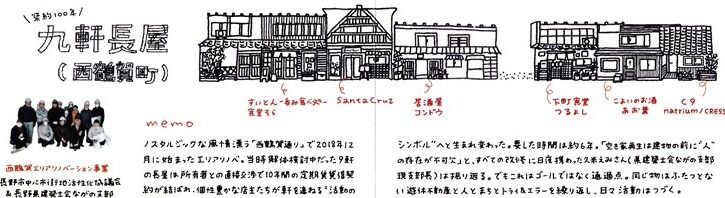 築約100年
九軒長屋
(西鶴賀町)
すいとん・呑み食べ処
食堂そら
Santa Cruz
居酒屋
コンドウ
下町食堂
つるよし
こよいのお酒
あお葉
C9
natrium/CRESS
memo
ノスタルジックな風情漂う"西鶴賀通り"で2018年12
月に始まったエリアリノベ。当時解体検討中だった9軒
の長屋は所有者との直接交渉で10年間の定期賃貸借契
約が結ばれ、個性豊かな店主たちが軒を連ねる"活動の
シンボル"へと生まれ変わった。要した時間は約6年。「空き家再生は建物の前に"人"
の存在が不可欠」と、すべての改修に日夜携わった久米えみさん(県建築士会ながの支部
現支部長)は振り返る。でもこれはゴールではなく通過点。同じ物はふたつとな
い遊休不動産と人とまちとトライ&エラーを繰り返し、日々活動はつづく。
西鶴賀エリアリノベーション事業
長野市中心市街地活性化協議会
&長野県建築士会ながの支部